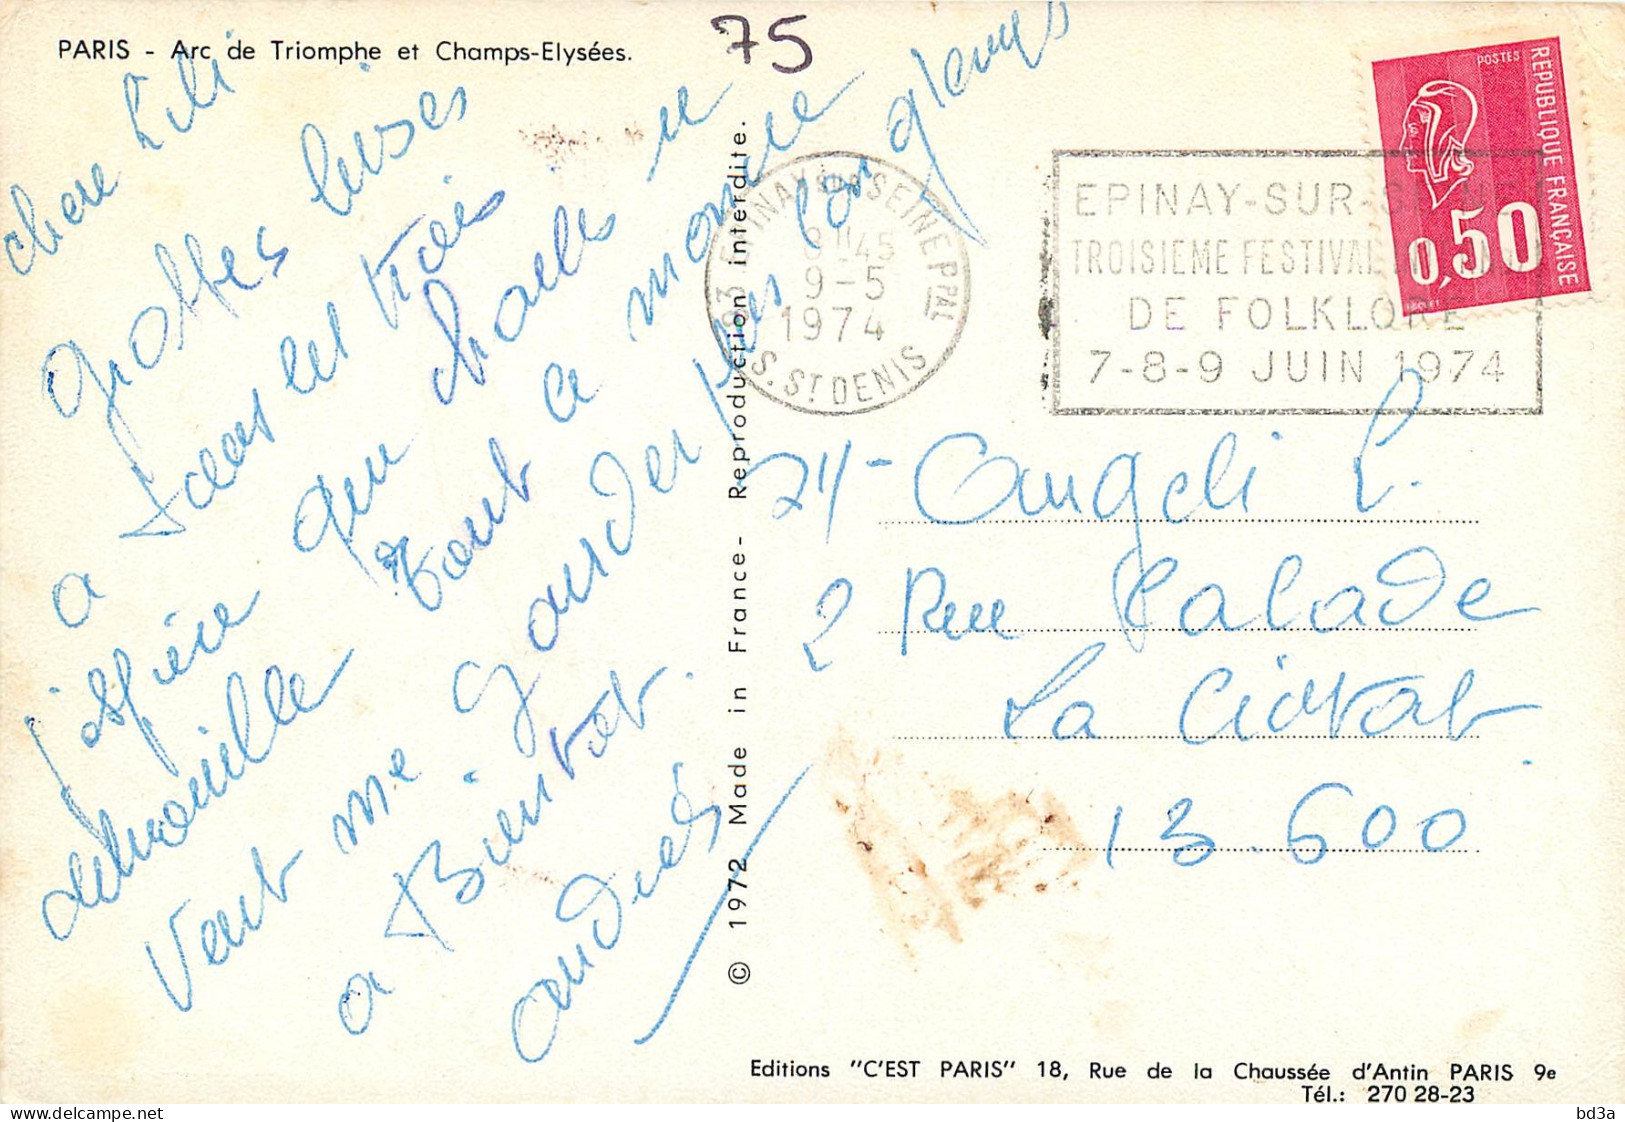 PARIS - Arc de Triomphe et Champs-Elysées.
75
chere Lili
grosses bises
a tous les trois
j'espère que charles se
debrouille tout le monde
veut me garder plus longtemps
a Bientot.
andré
© 1972 Made in France - Reproduction interdite.
93 EPINAY SUR SEINE PPAL
9-5
1974
S. ST DENIS
EPINAY-SUR-SEINE
TROISIEME FESTIVAL
DE FOLKLORE
7-8-9 JUIN 1974
POSTES
REPUBLIQUE FRANÇAISE
0,50
Angeli L.
2 Rue Calade
La Ciotat
13.600
Editions "C'EST PARIS" 18, Rue de la Chaussée d'Antin PARIS 9e
Tél.: 270 28-23
delcampe.net
bd3a